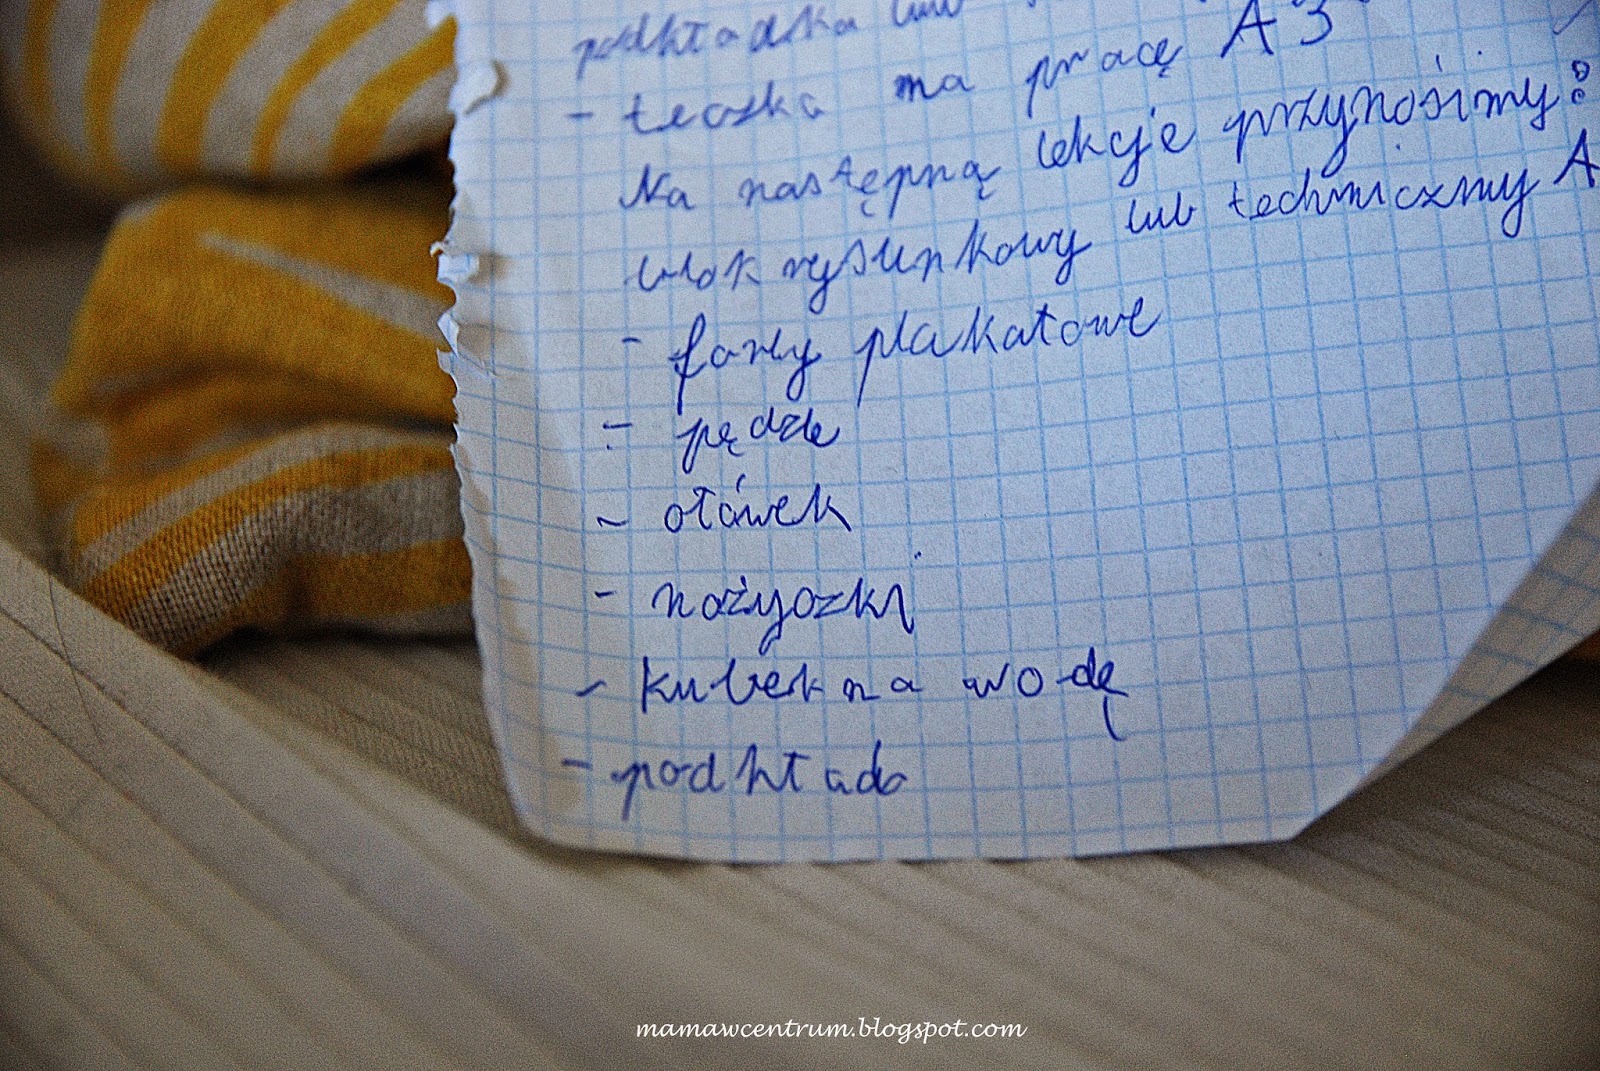 podkładka lub
- teczka na pracę A3
Na następną lekcje przynośimy:
blok rysunkowy lub techniczny A
- farby plakatowe
- pędzle
- ołówek
- nożyczki
- kubek na wodę
- podkłada
mamawcentrum.blogspot.com